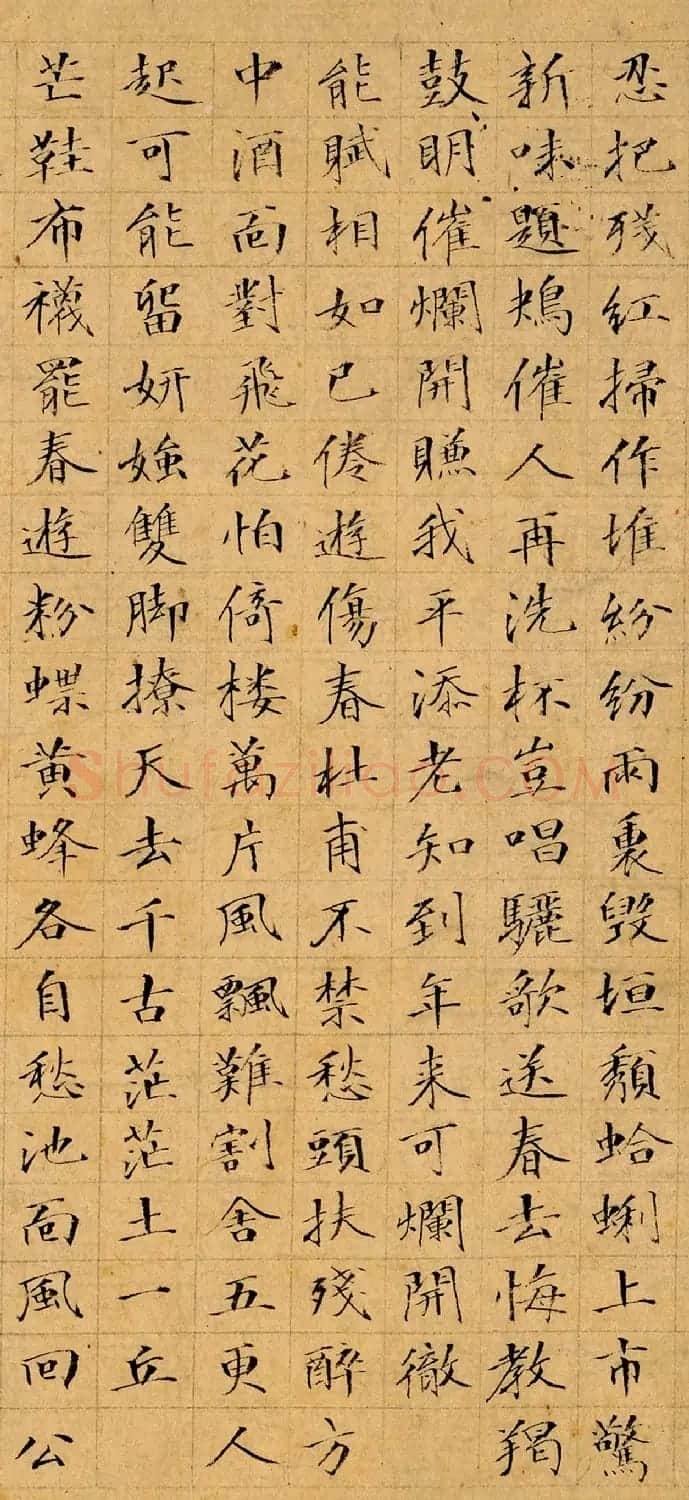 忍把残紅掃作堆紛紛雨裏毀垣頹蛤蜊上市驚
新味題鴂催人再洗杯豈唱驪歌送春去悔教羯
鼓明催爛開賺我平添老知到年来可爛開徹
能賦相如已倦遊傷春杜甫不禁愁頭扶残醉方
中酒面對飛花怕倚楼萬片風飄難割舍五更人
起可能留妍媸雙脚撩天去千古茫茫土一丘
芒鞋布襪罷春遊粉蝶黄蜂各自愁池面風回公